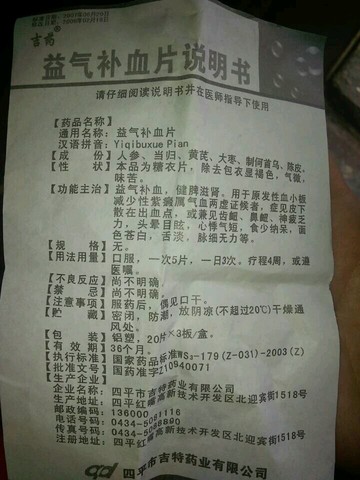 核准日期：2007年06月29日
修改日期：2008年02月19日
吉药
益气补血片说明书
请仔细阅读说明书并在医师指导下使用
【药品名称】
通用名称：益气补血片
汉语拼音：Yiqibuxue Pian
【成　　份】人参、当归、黄芪、大枣、制何首乌、陈皮。
【性　　状】本品为糖衣片，除去包衣显褐色，气微，
味苦。
【功能主治】益气补血，健脾滋肾。用于原发性血小板
减少性紫癜属气血两虚证候者，症见皮下
散在出血点，或兼见齿衄、鼻衄、神疲乏
力，头晕目眩，心悸气短，食少纳呆，面
色苍白，舌淡，脉细无力等。
【规　　格】无。
【用法用量】口服，一次5片，一日3次。疗程4周，或遵
医嘱。
【不良反应】尚不明确。
【禁　　忌】尚不明确。
【注意事项】服药后，偶见口干。
【贮　　藏】密闭，防潮，放阴凉(不超过20℃)干燥通
风处。
【包　　装】铝塑，20片×3板/盒。
【有 效 期】36个月。
【执行标准】国家药品标准WS₃-179(Z-031)-2003(Z)
【批准文号】国药准字Z10940071
【生产企业】
企业名称：四平市吉特药业有限公司
生产地址：四平红嘴高新技术开发区北迎宾街1518号
邮政编码：136000
电话号码：0434-5081116
传真号码：0434-5088111
注册地址：四平红嘴高新技术开发区北迎宾街1518号
四平市吉特药业有限公司